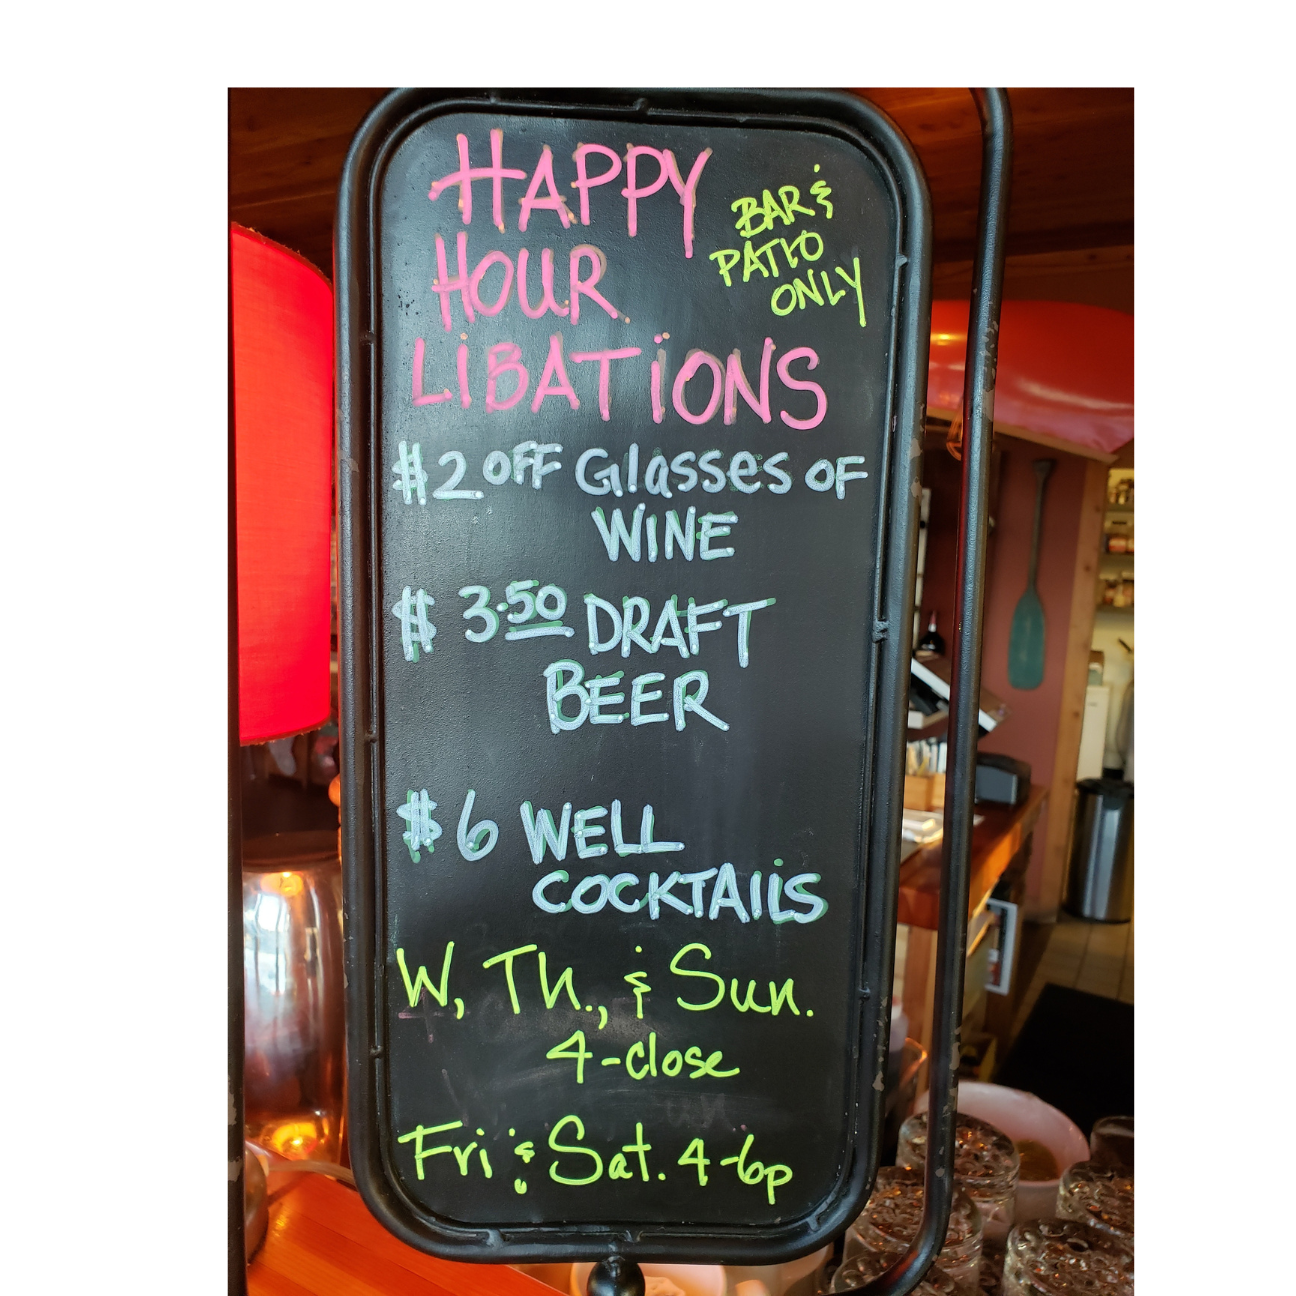 HAPPY
HOUR
LIBATIONS
BAR &
PATIO
ONLY
$2 OFF Glasses OF
WINE
$ 3.50 DRAFT
BEER
$6 WELL
COCKTAILS
W, Th., & Sun.
4-close
Fri & Sat. 4-6p